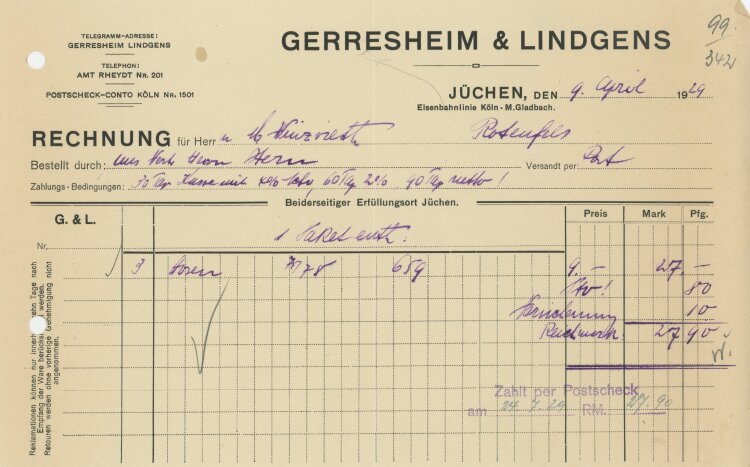 TELEGRAMM-ADRESSE:
GERRESHEIM LINDGENS
TELEPHON:
AMT RHEYDT NR. 201
POSTSCHECK-CONTO KÖLN NR. 1501
GERRESHEIM & LINDGENS
99
342
JÜCHEN, DEN 9. April 1929
Eisenbahnlinie Köln - M.Gladbach.
RECHNUNG für Herr Rosenfels
Bestellt durch: Herrn Stern Versandt per: Post
Zahlungs - Bedingungen: 30 Tge Kasse mit 60 Tg 2% 90 Tge netto!
Beiderseitiger Erfüllungsort Jüchen.
G. & L. Preis Mark Pfg.
Nr. 1 Paket enth:
3 Hosen 659 9.- 27.-
Porto! 80
10
Reichsmark 27 90
Zahlt per Postscheck
am RM. 27.90
Reklamationen können nur innerhalb zehn Tage nach
Empfang der Ware berücksichtigt werden.
Retouren werden ohne vorherige Genehmigung nicht
angenommen.